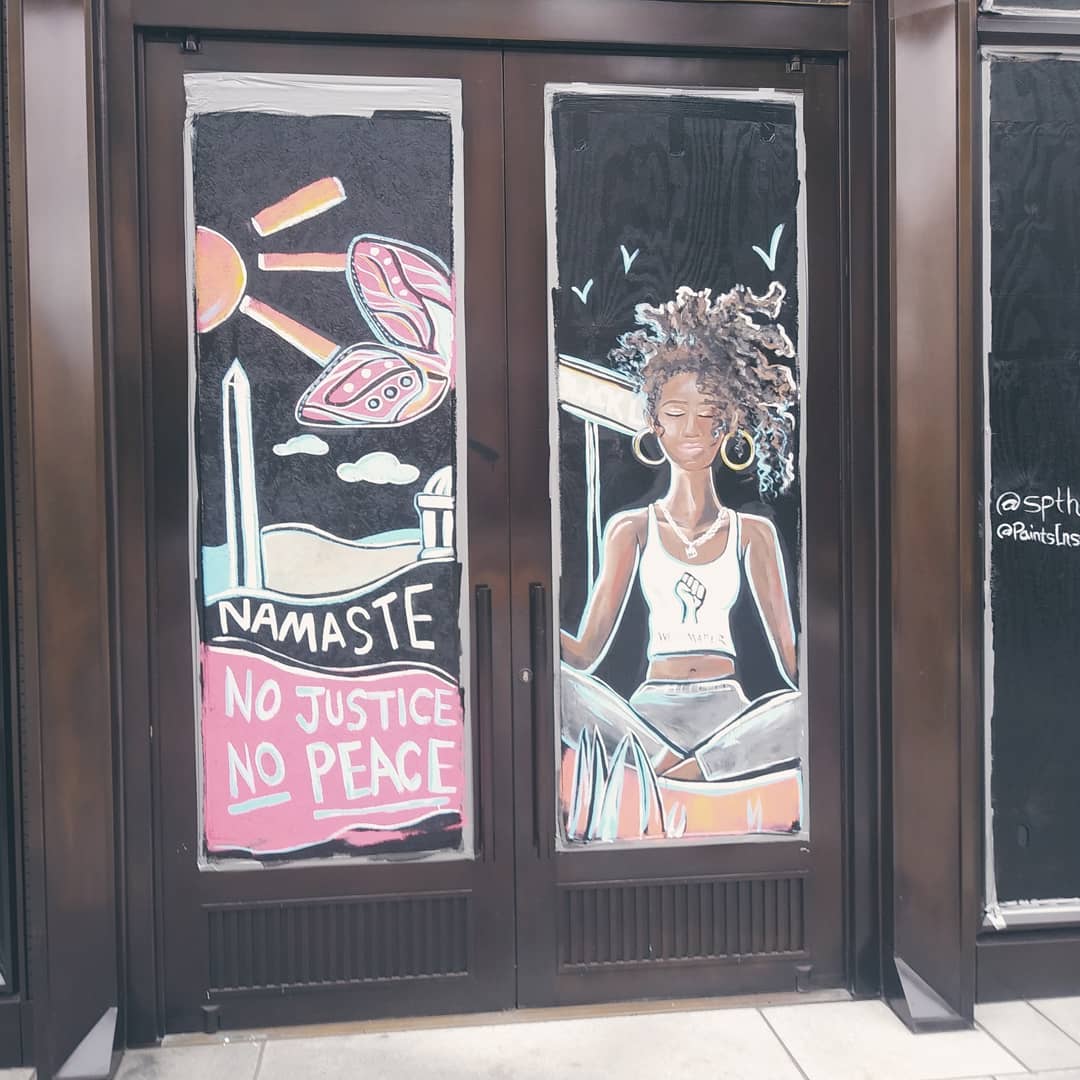 NAMASTE
NO JUSTICE
NO PEACE
@spth
@PaintsIns